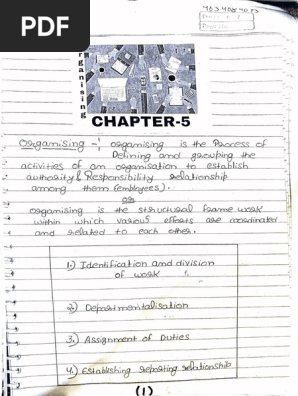 PDF
Organising
CHAPTER-5
Organising -: organising is the Process of
Defining and grouping the
activities of an organisation to establish
authority & Responsibility relationship
among them (employees).
or
organising is the structural frame work
within which various efforts are coordinated
and related to each other.
1.) Identification and division
of work
2.) Departmentalisation
3.) Assignment of Duties
4.) Establishing reporting relationship
(1)